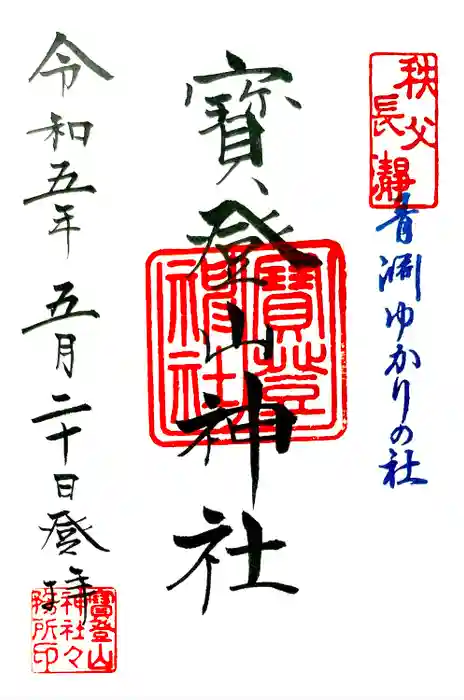 秩父
長瀞
青淵ゆかりの社
寳登山神社
寳登山
神社
令和五年 五月二十日登拝
寳登山
神社々
務所印